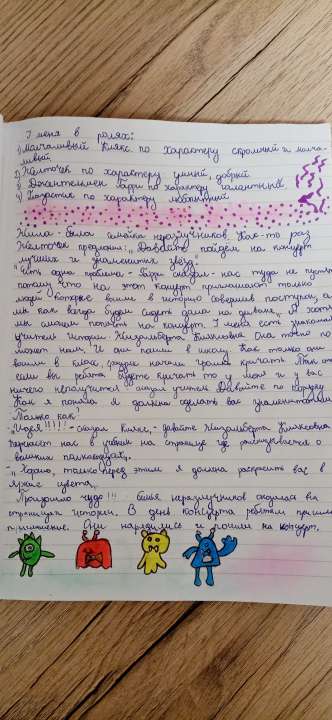 Имена в ролях:
1) Молчаливый Клякс по характеру скромный и молча-
ливый
2) Желточек по характеру умный, добрый
3) Джентельмен Барри по характеру галантный
4) по характеру любопытный
Жила - была семейка неразлучников. Как-то раз
Желточек предложил: "Давайте пойдём на концерт
лучших и знаменитых звёзд.
"Есть одна проблема - Барри сказал - нас туда не пустят
потому что на этот концерт приглашают только
людей которые вошли в историю совершив поступки, а
мы как всегда будем сидеть дома на диване. А хотя
мы сможем попасть на концерт. У меня есть знакомый
учитель истории Кляксовна. Она точно по-
может нам. И они пошли в школу. Как только они
вошли в класс, сразу начали громко кричать. "Так
если вы ребята будете кричать то у меня и у вас
ничего не получится" - сказал учитель. Давайте по порядку
Как я поняла я должна сделать вас знаменитыми
Только как?
"Идея!!!!! - сказал Клякс, - давайте Кляксовна
нас в учебник на странице где рассказывается о
великих полководцах,,
,, Хорошо, только перед этим я должна раскрасить вас в
яркие цвета,,
Произошло чудо!!! неразлучников оказалась на
страницах истории. В день концерта ребятам пришло
приглашение. Они нарядились и пошли на концерт.